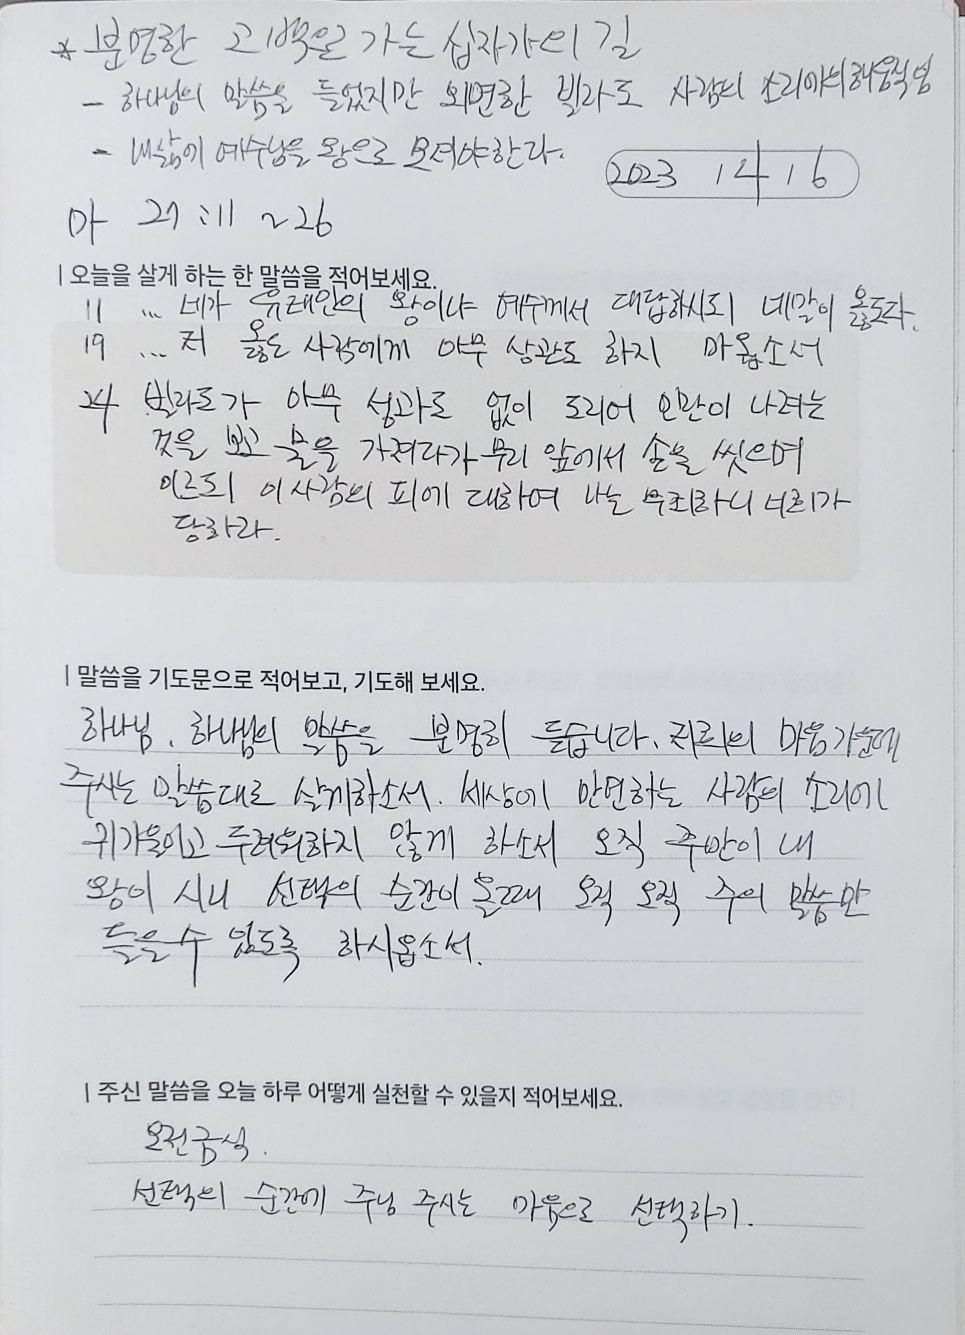 * 분명한 고백으로 가는 십자가의 길
- 하나님의 말씀을 들었지만 외면한 빌라도 사람의 소리에 의해 움직임
- 내삶에 예수님을 왕으로 모셔야한다.
2023 / 4 / 16
마 27:11 ~26
| 오늘을 살게 하는 한 말씀을 적어보세요.
11 ... 네가 유대인의 왕이냐 예수께서 대답하시되 네말이 옳도다.
19 ... 저 옳은 사람에게 아무 상관도 하지 마옵소서
24 빌라도가 아무 성과도 없이 도리어 민란이 나려는
것을 보고 물을 가져다가 무리 앞에서 손을 씻으며
이르되 이 사람의 피에 대하여 나는 무죄하니 너희가
당하라.
| 말씀을 기도문으로 적어보고, 기도해 보세요.
하나님. 하나님의 말씀을 분명히 듣습니다. 저희의 마음 가운데
주시는 말씀대로 살게하소서. 세상에 만연하는 사람의 소리에
귀기울이고 두려워하지 않게 하소서 오직 주만이 내
왕이 시니 선택의 순간이 올때 오직 오직 주의 말씀만
들을 수 있도록 하시옵소서.
| 주신 말씀을 오늘 하루 어떻게 실천할 수 있을지 적어보세요.
오전금식.
선택의 순간에 주님 주시는 마음으로 선택하기.